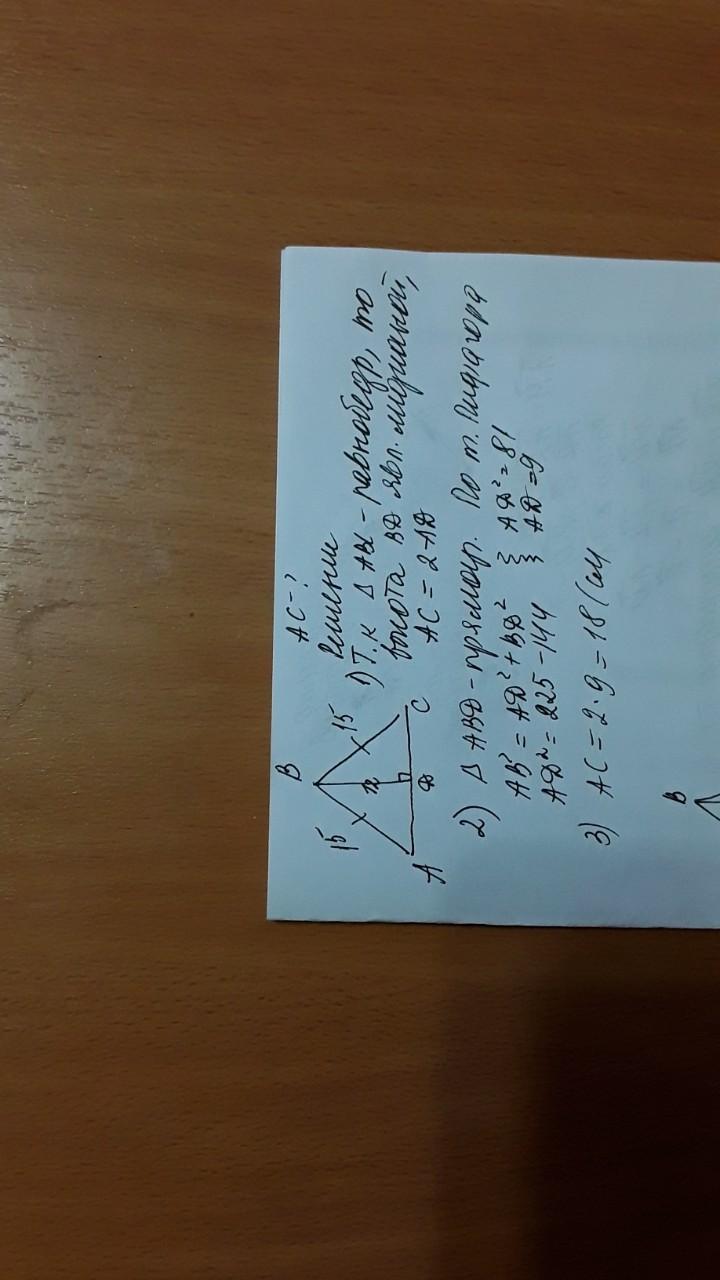 AC - ?
B
15
15
12
A
D
C
Решение
1) Т.к Δ ABC - равнобедр, то
высота BD явл. медианой,
AC = 2·AD
2) Δ ABD - прямоуг. По т. Пифагора
AB² = AD² + BD² } AD² = 81
AD² = 225 - 144 } AD = 9
3) AC = 2 · 9 = 18 (см
B